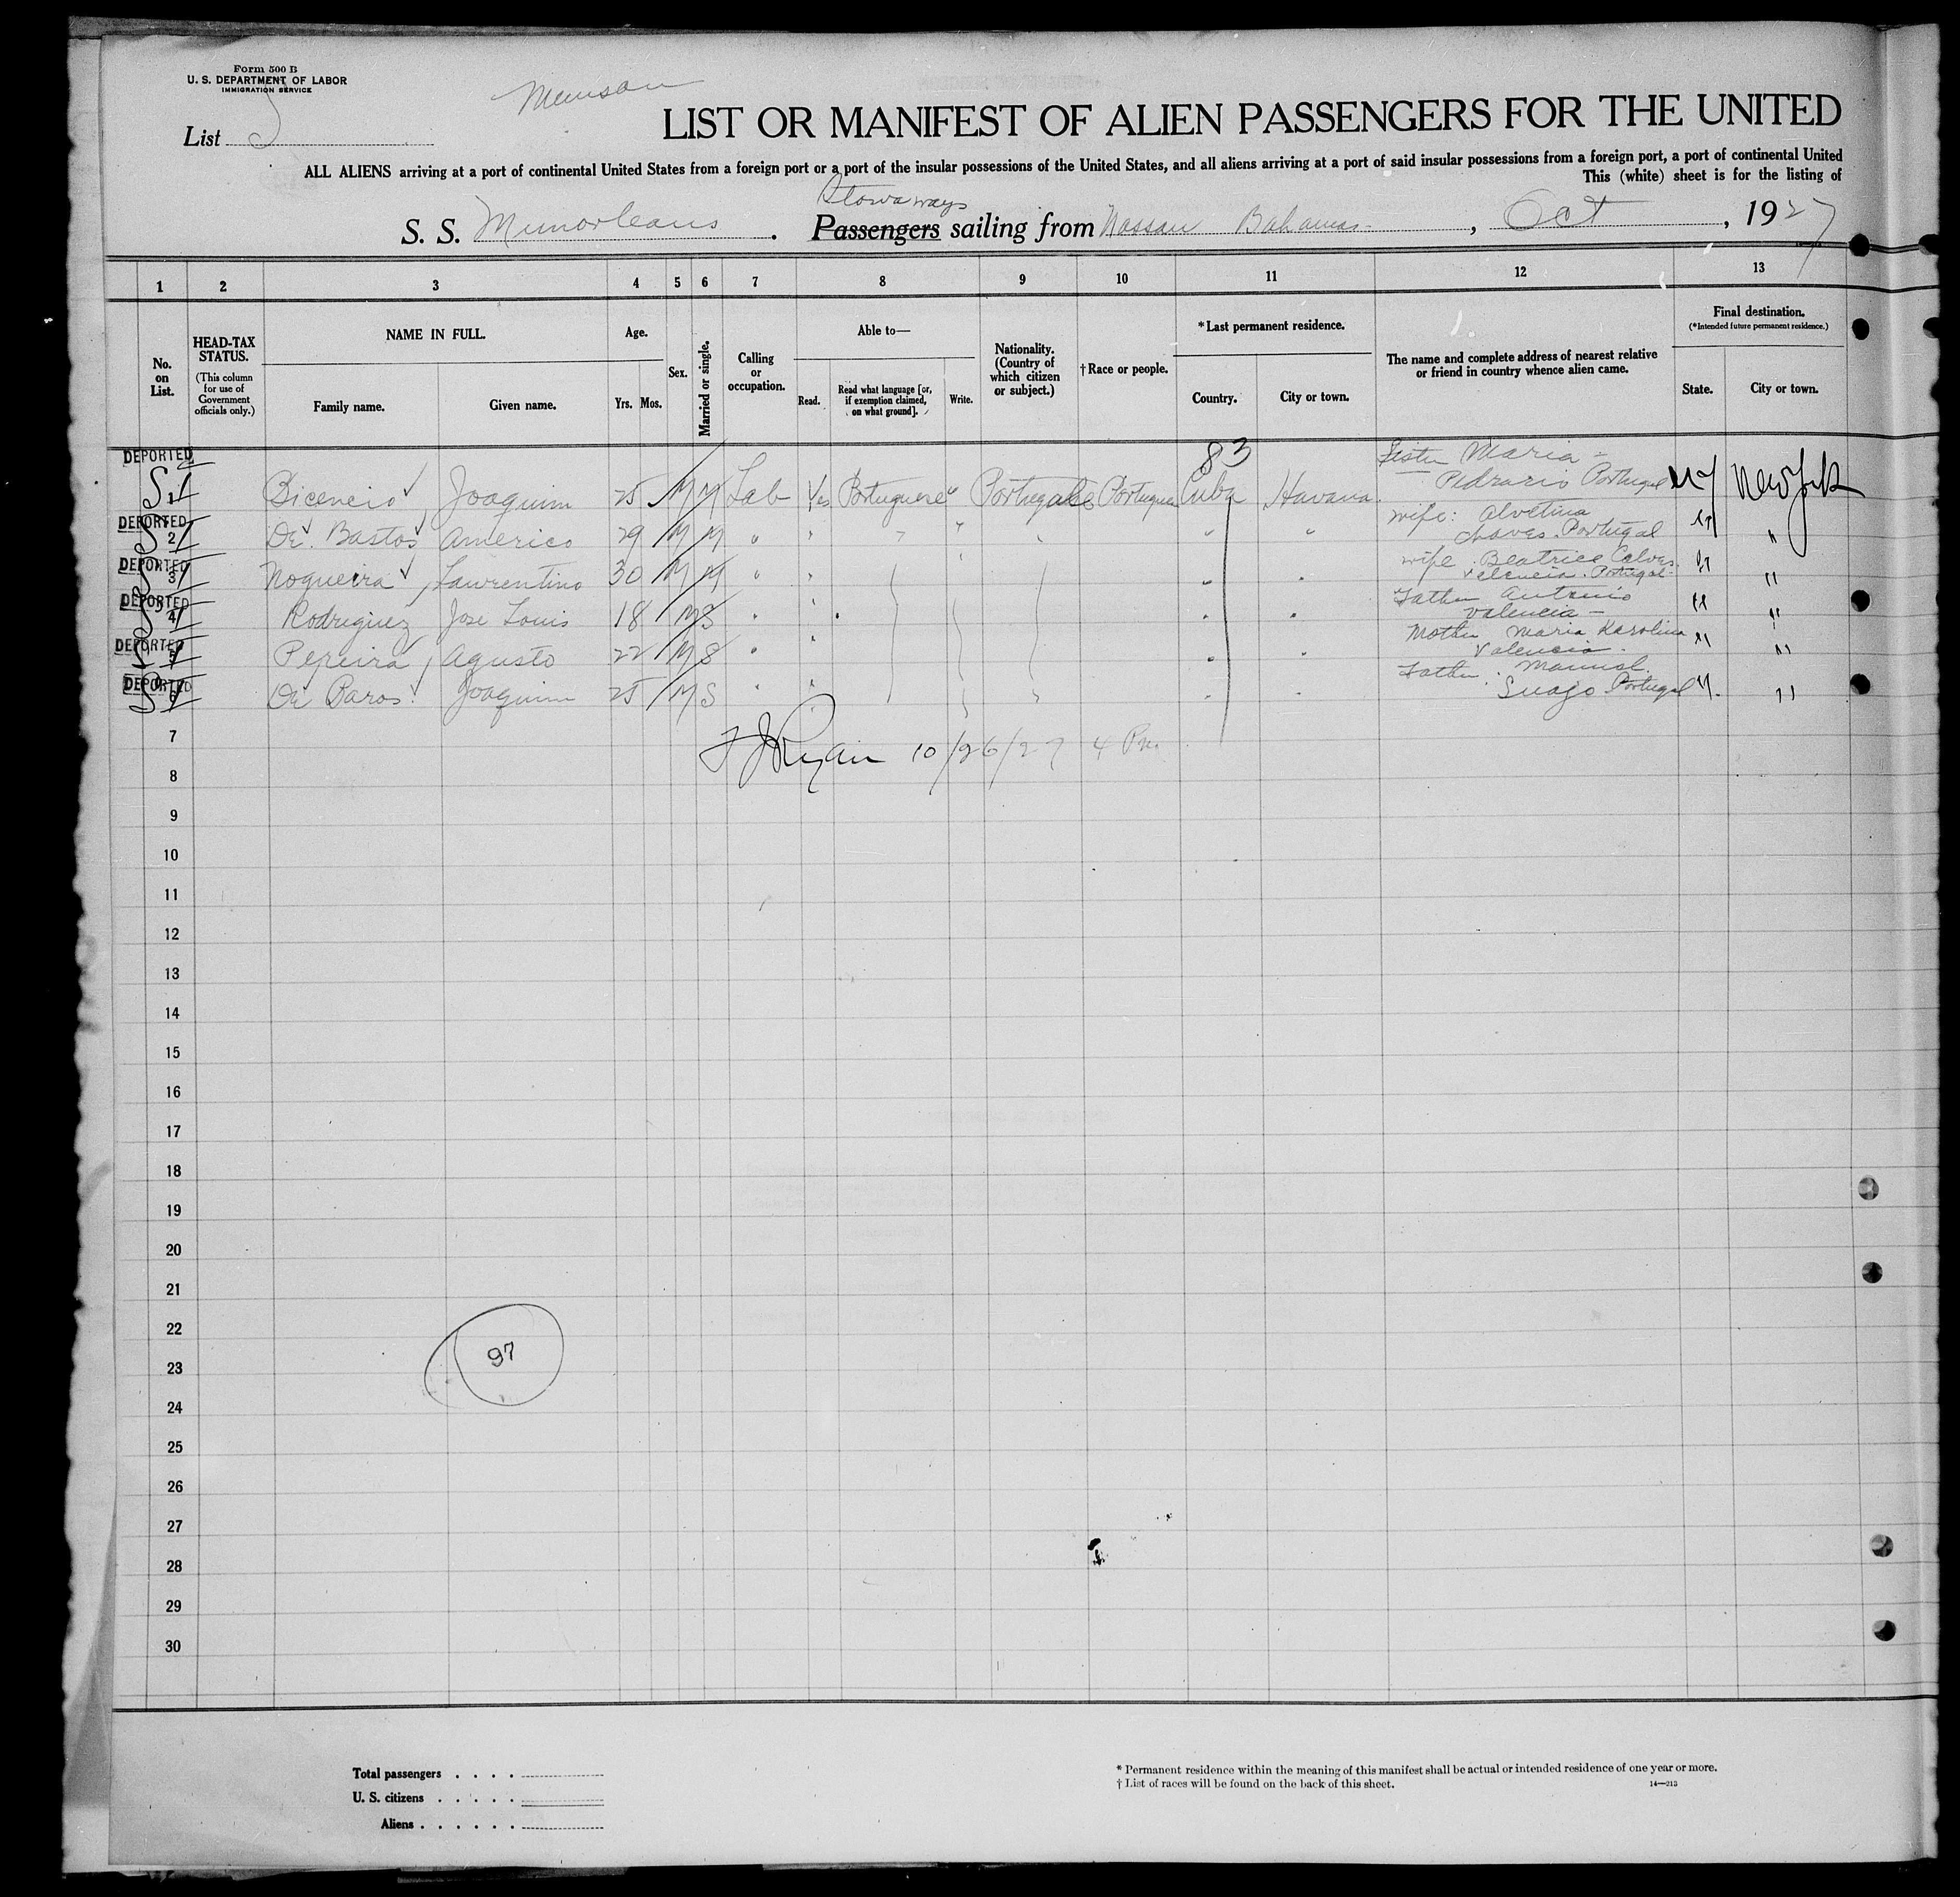 Form 500 B
U. S. DEPARTMENT OF LABOR
IMMIGRATION SERVICE
Munson
List
LIST OR MANIFEST OF ALIEN PASSENGERS FOR THE UNITED
ALL ALIENS arriving at a port of continental United States from a foreign port or a port of the insular possessions of the United States, and all aliens arriving at a port of said insular possessions from a foreign port, a port of continental United
This (white) sheet is for the listing of
Stowaways
S. S. Munorleans. Passengers sailing from Nassau Bahamas, Oct, 1927
1 2 3 4 5 6 7 8 9 10 11 12 13
No. on List.
HEAD-TAX STATUS.
(This column for use of Government officials only.)
NAME IN FULL.
Family name. Given name.
Age.
Yrs. Mos.
Sex.
Married or single.
Calling or occupation.
Able to—
Read. Read what language [or, if exemption claimed, on what ground]. Write.
Nationality. (Country of which citizen or subject.)
† Race or people.
* Last permanent residence.
Country. City or town.
The name and complete address of nearest relative or friend in country whence alien came.
Final destination.
(* Intended future permanent residence.)
State. City or town.
83
DEPORTED Sister Maria -
1 Bicencio, Joaquim 25 M M Lab Yes Portuguese " Portugal Portuguese Cuba Havana. Pedrario Portugal NY New York
DEPORTED wife: Alvetina
2 De Bastos Americo 29 M M " " " " " " Chaves. Portugal " "
DEPORTED wife. Beatrice Calves.
3 Nogueira, Laurentino 30 M M " " " " Valencia. Portugal- " "
DEPORTED Father Antonio
4 Rodriguez Jose Louis 18 M S " " " " Valencia - " "
DEPORTED Mother Maria Karolina
5 Pereira, Agusto 22 M S " " " Valencia. " "
DEPORTED Father. Manuel.
6 De Baros. Joaquim 25 M S " " " " Suajo Portugal " "
7 F J Ryan 10/26/27 4 Pm.
8
9
10
11
12
13
14
15
16
17
18
19
20
21
22
97
23
24
25
26
27
28
29
30
Total passengers . . . .
U. S. citizens . . . . .
Aliens . . . . . .
* Permanent residence within the meaning of this manifest shall be actual or intended residence of one year or more.
† List of races will be found on the back of this sheet. 14—213